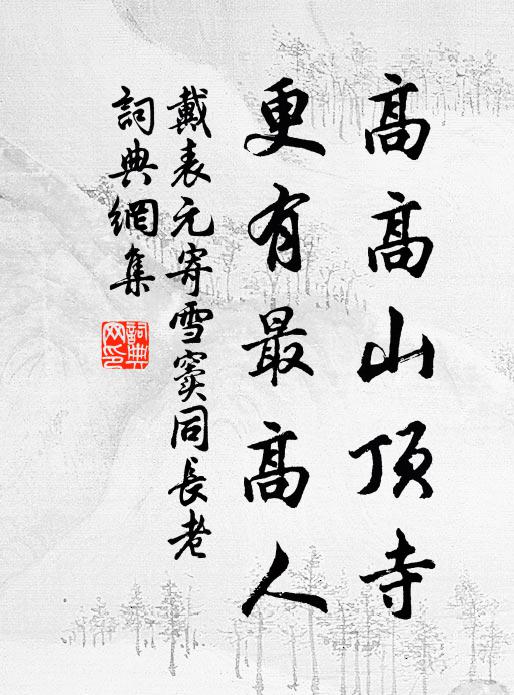 高高山頂寺
更有最高人
戴表元寄雪竇同長老
詞典網集
詞典
网印